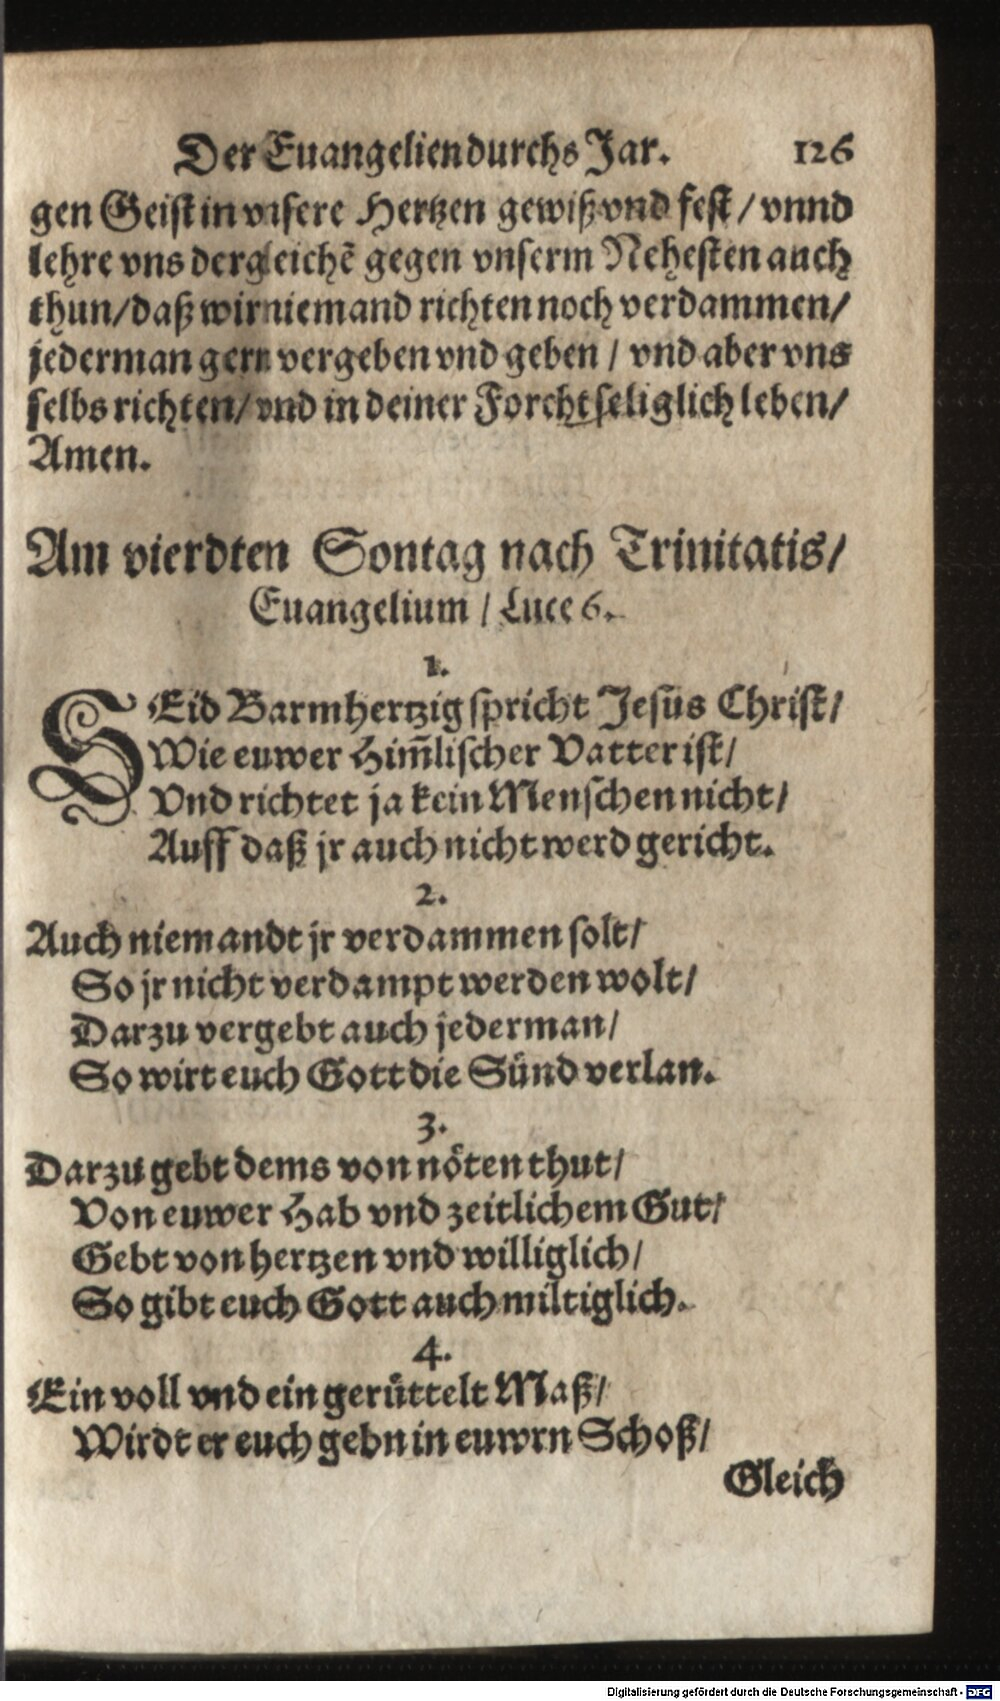 Der Euangelien durchs Jar. 126
gen Geist in vnsere Hertzen gewiß vnd fest / vnnd
lehre vns dergleichẽ gegen vnserm Nehesten auch
thun/daß wir niemand richten noch verdammen/
jederman gern vergeben vnd geben / vnd aber vns
selbs richten/ vnd in deiner Forcht seliglich leben/
Amen.
Am vierdten Sontag nach Trinitatis/
Euangelium / Luce 6.
1.
SEid Barmhertzig spricht Jesus Christ/
Wie euwer Him̃lischer Vatter ist/
Vnd richtet ja kein Menschen nicht/
Auff daß jr auch nicht werd gericht.
2.
Auch niemandt jr verdammen solt/
So jr nicht verdampt werden wolt/
Darzu vergebt auch jederman/
So wirt euch Gott die Sünd verlan.
3.
Darzu gebt dems von nöten thut/
Von euwer Hab vnd zeitlichem Gut/
Gebt von hertzen vnd williglich/
So gibt euch Gott auch miltiglich.
4.
Ein voll vnd ein gerüttelt Maß/
Wirdt er euch gebn in euwrn Schoß/
Gleich
Digitalisierung gefördert durch die Deutsche Forschungsgemeinschaft - DFG